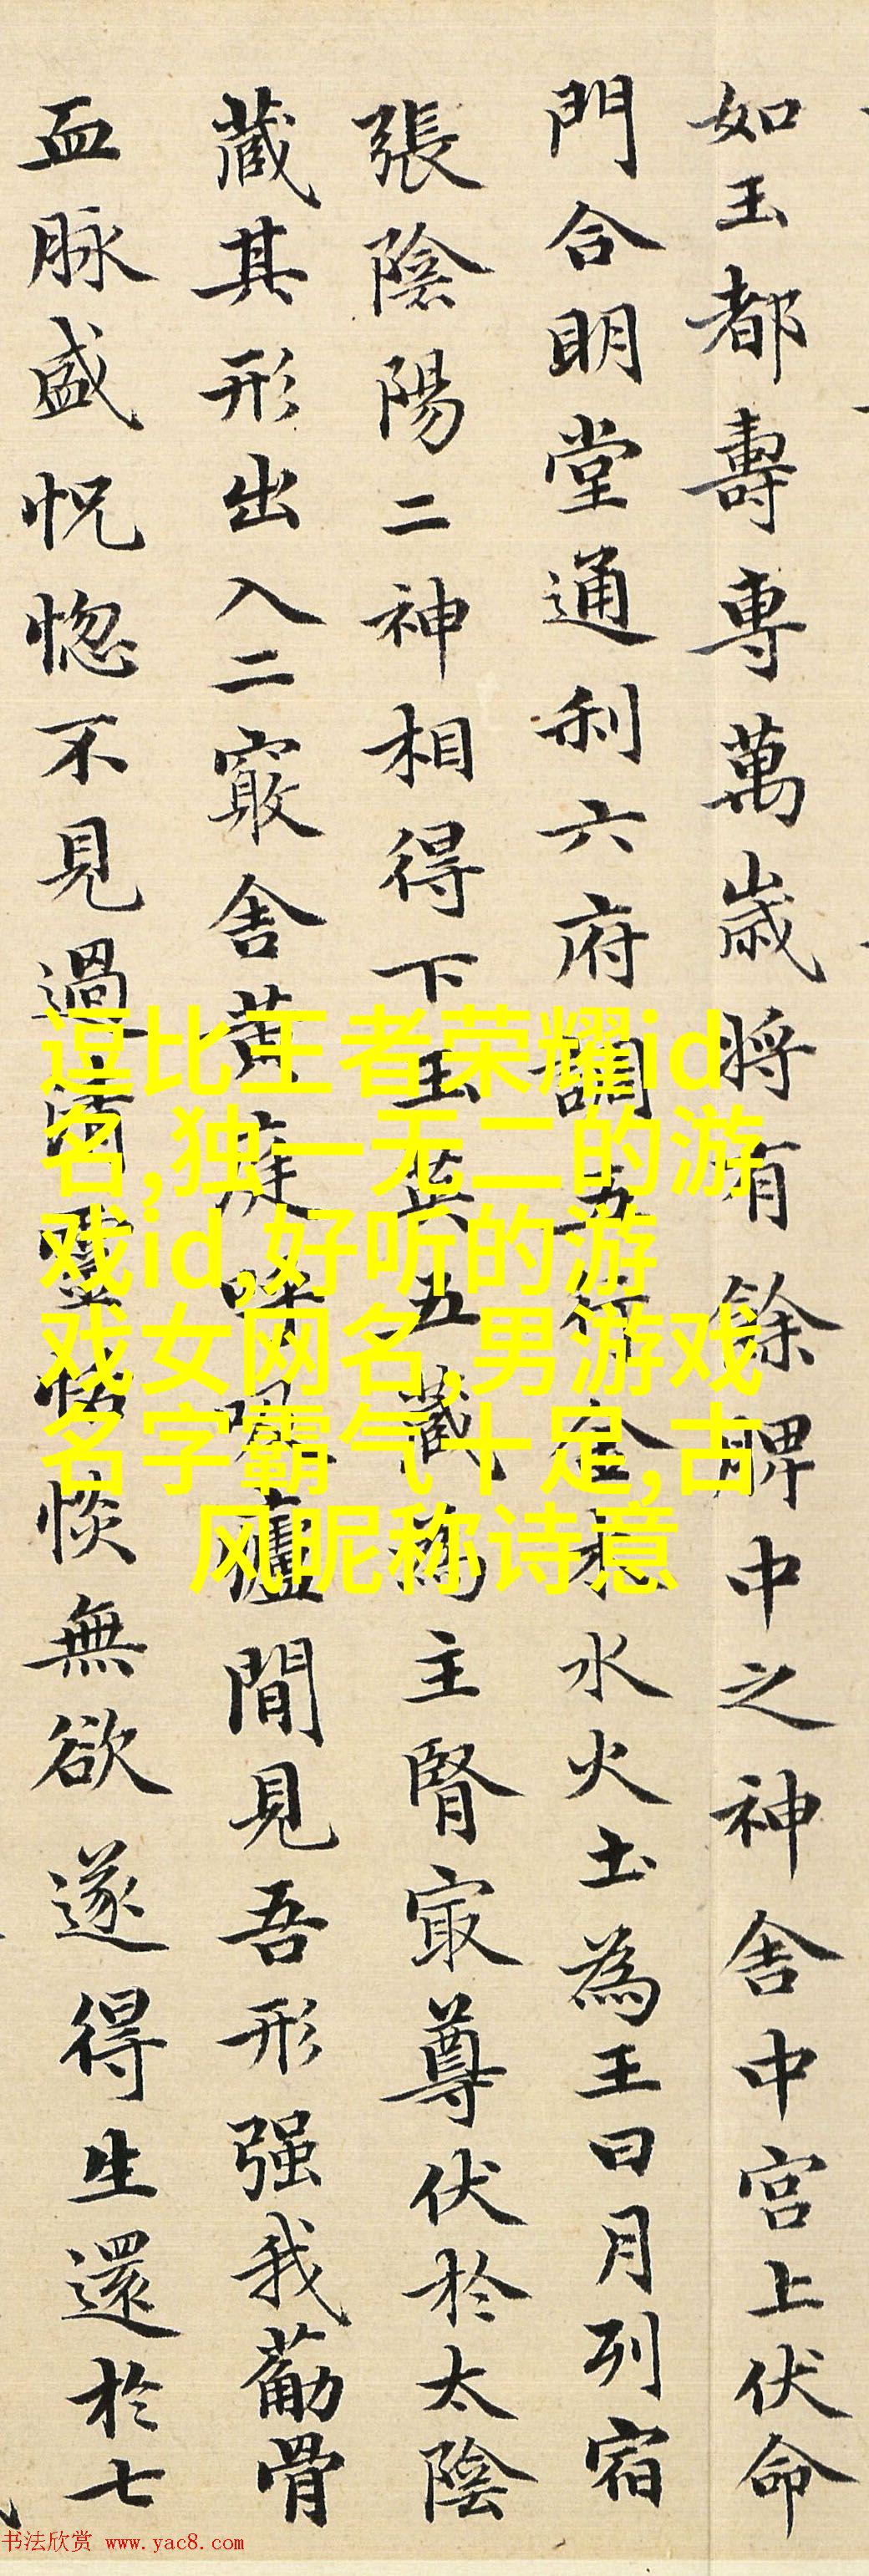 如玉都壽專萬歲將有餘脾中之神舍中宮上伏命
門合明堂通利六府調五行金木水火土為王日月列宿
張陰陽二神相得下玉英五藏為主腎寂尊伏於太陰
藏其形出入二竅舍黃庭呼吸廬間見吾形强我筋骨
血脉盛怳惚不見過清靈恬惔無欲遂得生還於七
逗比王者荣耀id
名,独一无二的游
戏id,好听的游
戏女网名,男游戏
名字霸气十足,古
风昵称诗意
书法欣赏 www.yac8.com